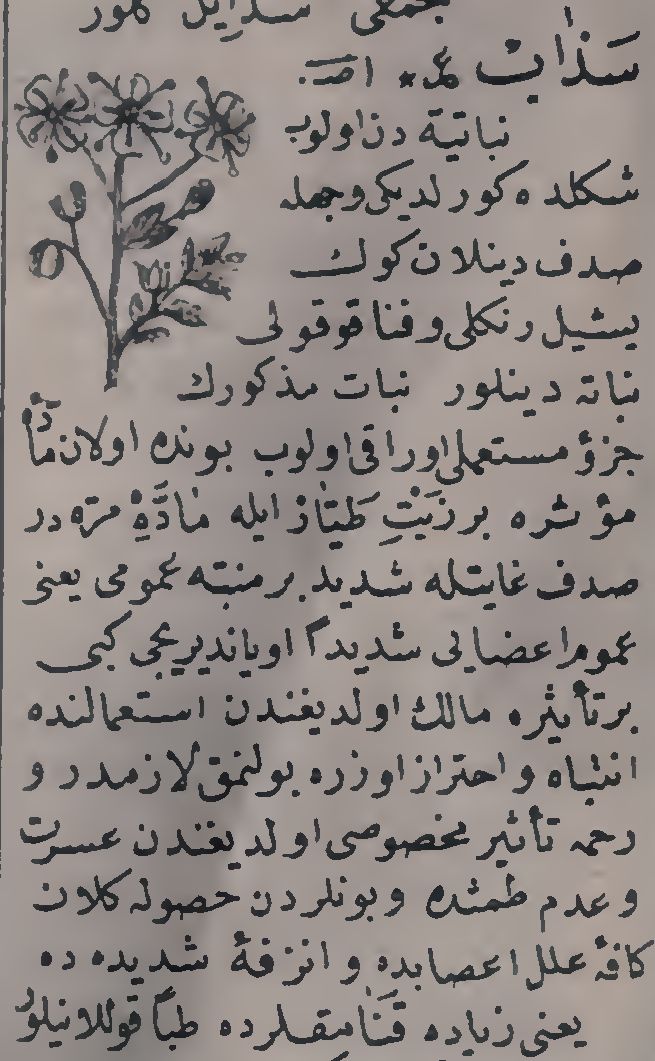 جمعی سذایل کلور
سَذٰاب عم* اصـ.
نباتیه دن اولوب
شکلده کورلدیکی وجهله
صدف دینلان کوك
یشیل رنکلی وفنا قوقولی
نباته دینلور نبات مذکورك
جزؤ مستعملی اوراقی اولوب بونده اولان مادّهٔ
مؤثره برزَیْتِ طَیّاز ایله مٰادَّهٔ مرّه در
صدف غایتله شدید بر منبّه عمومی یعنی
عموم اعضایی شدیداً اویاندیریجی کبی
برتأثیره مالك اولدیغندن استعمالنده
انتباه و احتراز اوزره بولنمق لازمدر و
رحمه تأثیر مخصوصی اولدیغندن عسرت
وعدم طمثده وبونلردن حصوله کلان
کافهٔ علل اعصابده و انزفهٔ شدیده ده
یعنی زیاده قَنٰامقلرده طباً قوللانیلور